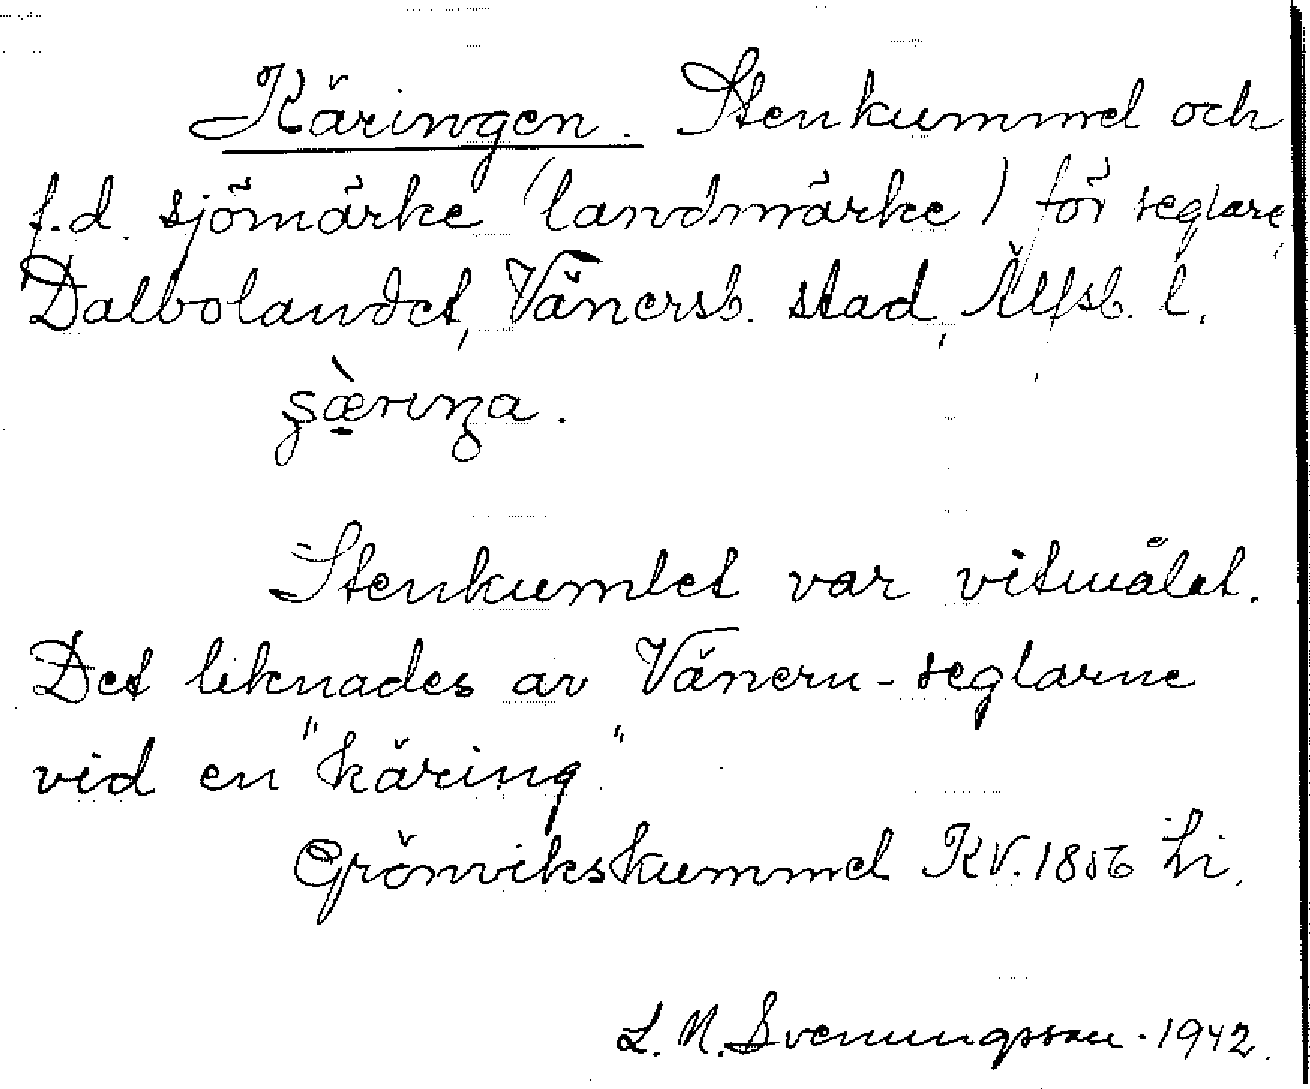 Käringen. Stenkummel och
f.d. sjömärke (landmärke) för seglare,
Dalbolandet, Vänersb. stad, Älfsb. l.
Stenkumlet var vitmålat.
Det liknades av Vänern-seglarne
vid en "käring".
Grönvikskummel KV. 1856 Li.
L. N. Svenungsson. 1942.